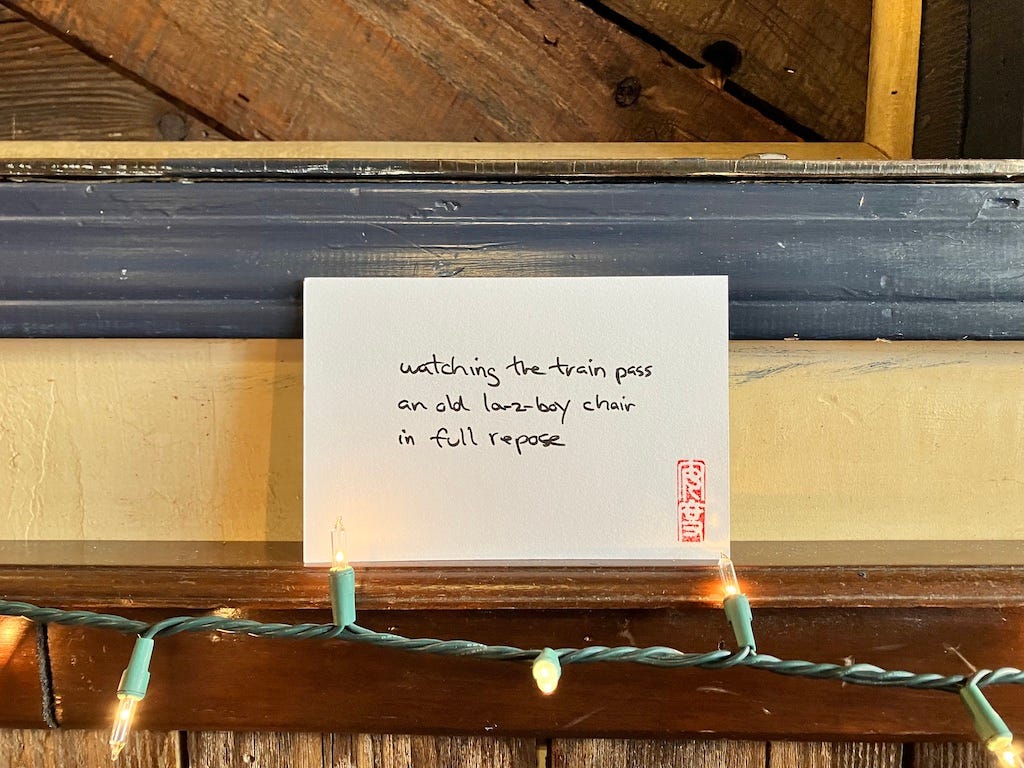 watching the train pass
an old la-z-boy chair
in full repose